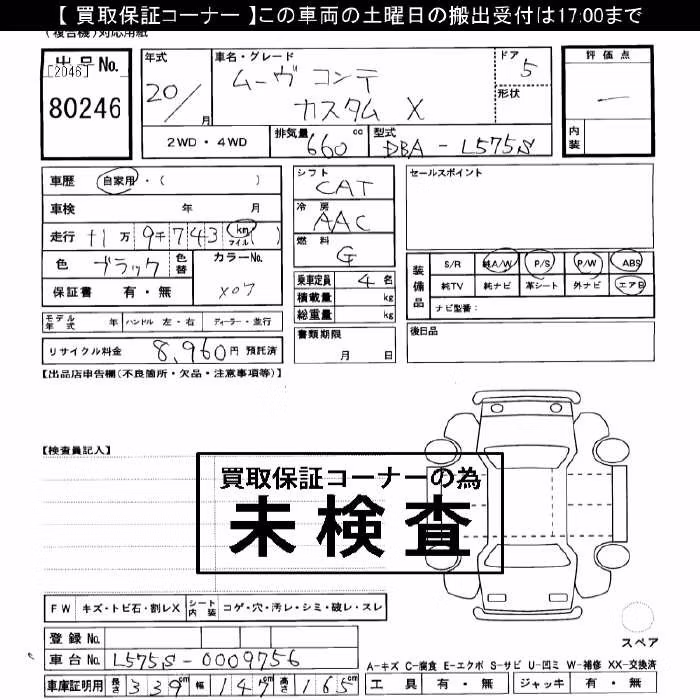 【 買取保証コーナー 】この車両の土曜日の搬出受付は17:00まで
(複合機)対応用紙
出品No.
[2046]
80246
年式 20/ 月
車名・グレード ムーヴ コンテ カスタム X
ドア 5
形状
2WD・4WD
排気量 660 cc
型式 DBA - L575S
評価点 —
内装
車歴 自家用・( )
車検 年 月
走行 11万9千743 km マイル ( )
色 ブラック 色替
カラーNo. X07
保証書 有・無
モデル年式 年 ハンドル 左・右 ディーラー・並行
リサイクル料金 8,960円 預託済
シフト CAT
冷房 AAC
燃料 G
乗車定員 4 名
積載量 kg
総重量 kg
書類期限 月 日
セールスポイント
装備品 S/R 純A/W P/S P/W ABS
純TV 純ナビ 革シート 外ナビ エアB
ナビ型番:
後日品
【出品店申告欄(不良箇所・欠品・注意事項等)】
【検査員記入】
買取保証コーナーの為
未検査
FW キズ・トビ石・割レX シート内装 コゲ・穴・汚レ・シミ・破レ・スレ
登録No.
車台No. L575S-0009756
車庫証明用 長さ 339cm 幅 147cm 高さ 165cm
スペア
A-キズ C-腐食 E-エクボ S-サビ U-凹ミ W-補修 XX-交換済
工具 有・無 ジャッキ 有・無